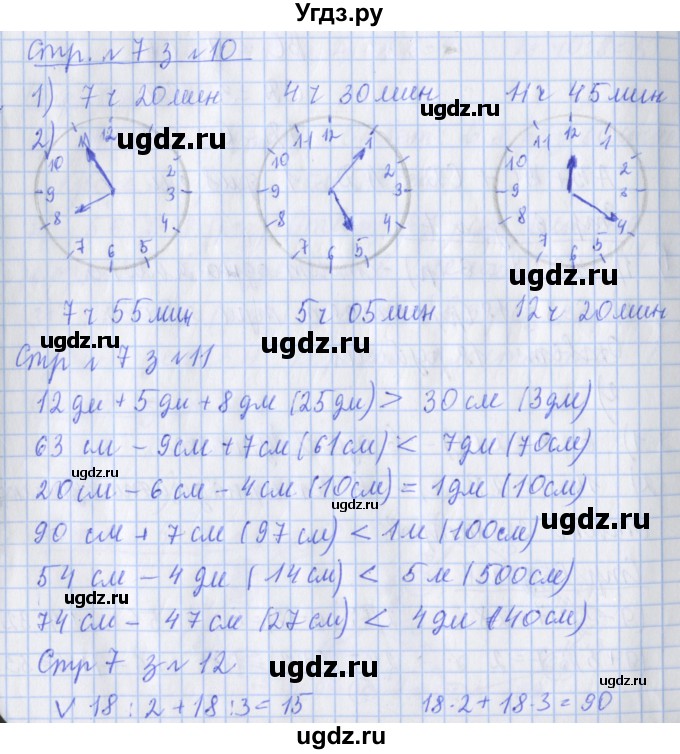 Угдз.ру
Стр. № 7 з № 10
1) 7 ч 20 мин 4 ч 30 мин 11 ч 45 мин
2)
11 12 1
10 2
9 3
8 4
7 6 5
11 12 1
10 2
9 3
8 4
7 6 5
11 12 1
10 2
9 3
8 4
7 6 5
7 ч 55 мин 5 ч 05 мин 12 ч 20 мин
Стр № 7 з № 11
12 дм + 5 дм + 8 дм (25 дм) > 30 см (3 дм)
63 см - 9 см + 7 см (61 см) < 7 дм (70 см)
20 см - 6 см - 4 см (10 см) = 1 дм (10 см)
90 см + 7 см (97 см) < 1 м (100 см)
54 см - 4 дм (14 см) < 5 м (500 см)
74 см - 47 см (27 см) < 4 дм (40 см)
Стр 7 з № 12
V 18 : 2 + 18 : 3 = 15 18 · 2 + 18 · 3 = 90
ugdz.ru
ugdz.ru
ugdz.ru
ugdz.ru
ugdz.ru
ugdz.ru
ugdz.ru
ugdz.ru
ugdz.ru
ugdz.ru
ugdz.ru
ugdz.ru
ugdz.ru
ugdz.ru